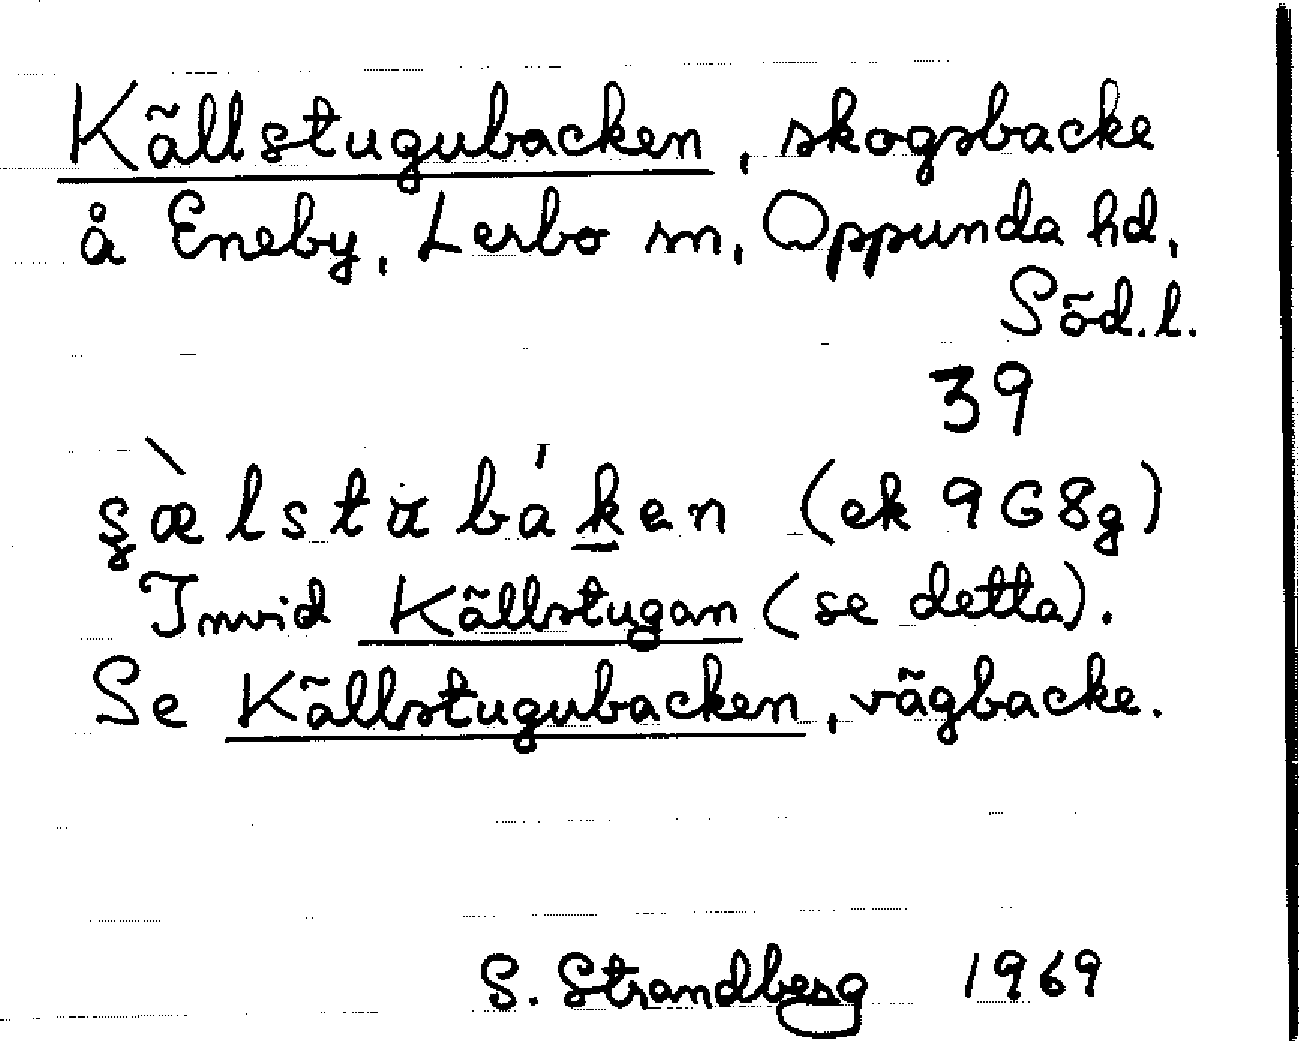 Källstugubacken, skogsbacke
å Eneby, Lerbo sn, Oppunda hd,
Söd.l.
39
(ek 9G8g)
Invid Källstugan (se detta).
Se Källstugubacken, vägbacke.
S. Strandberg 1969